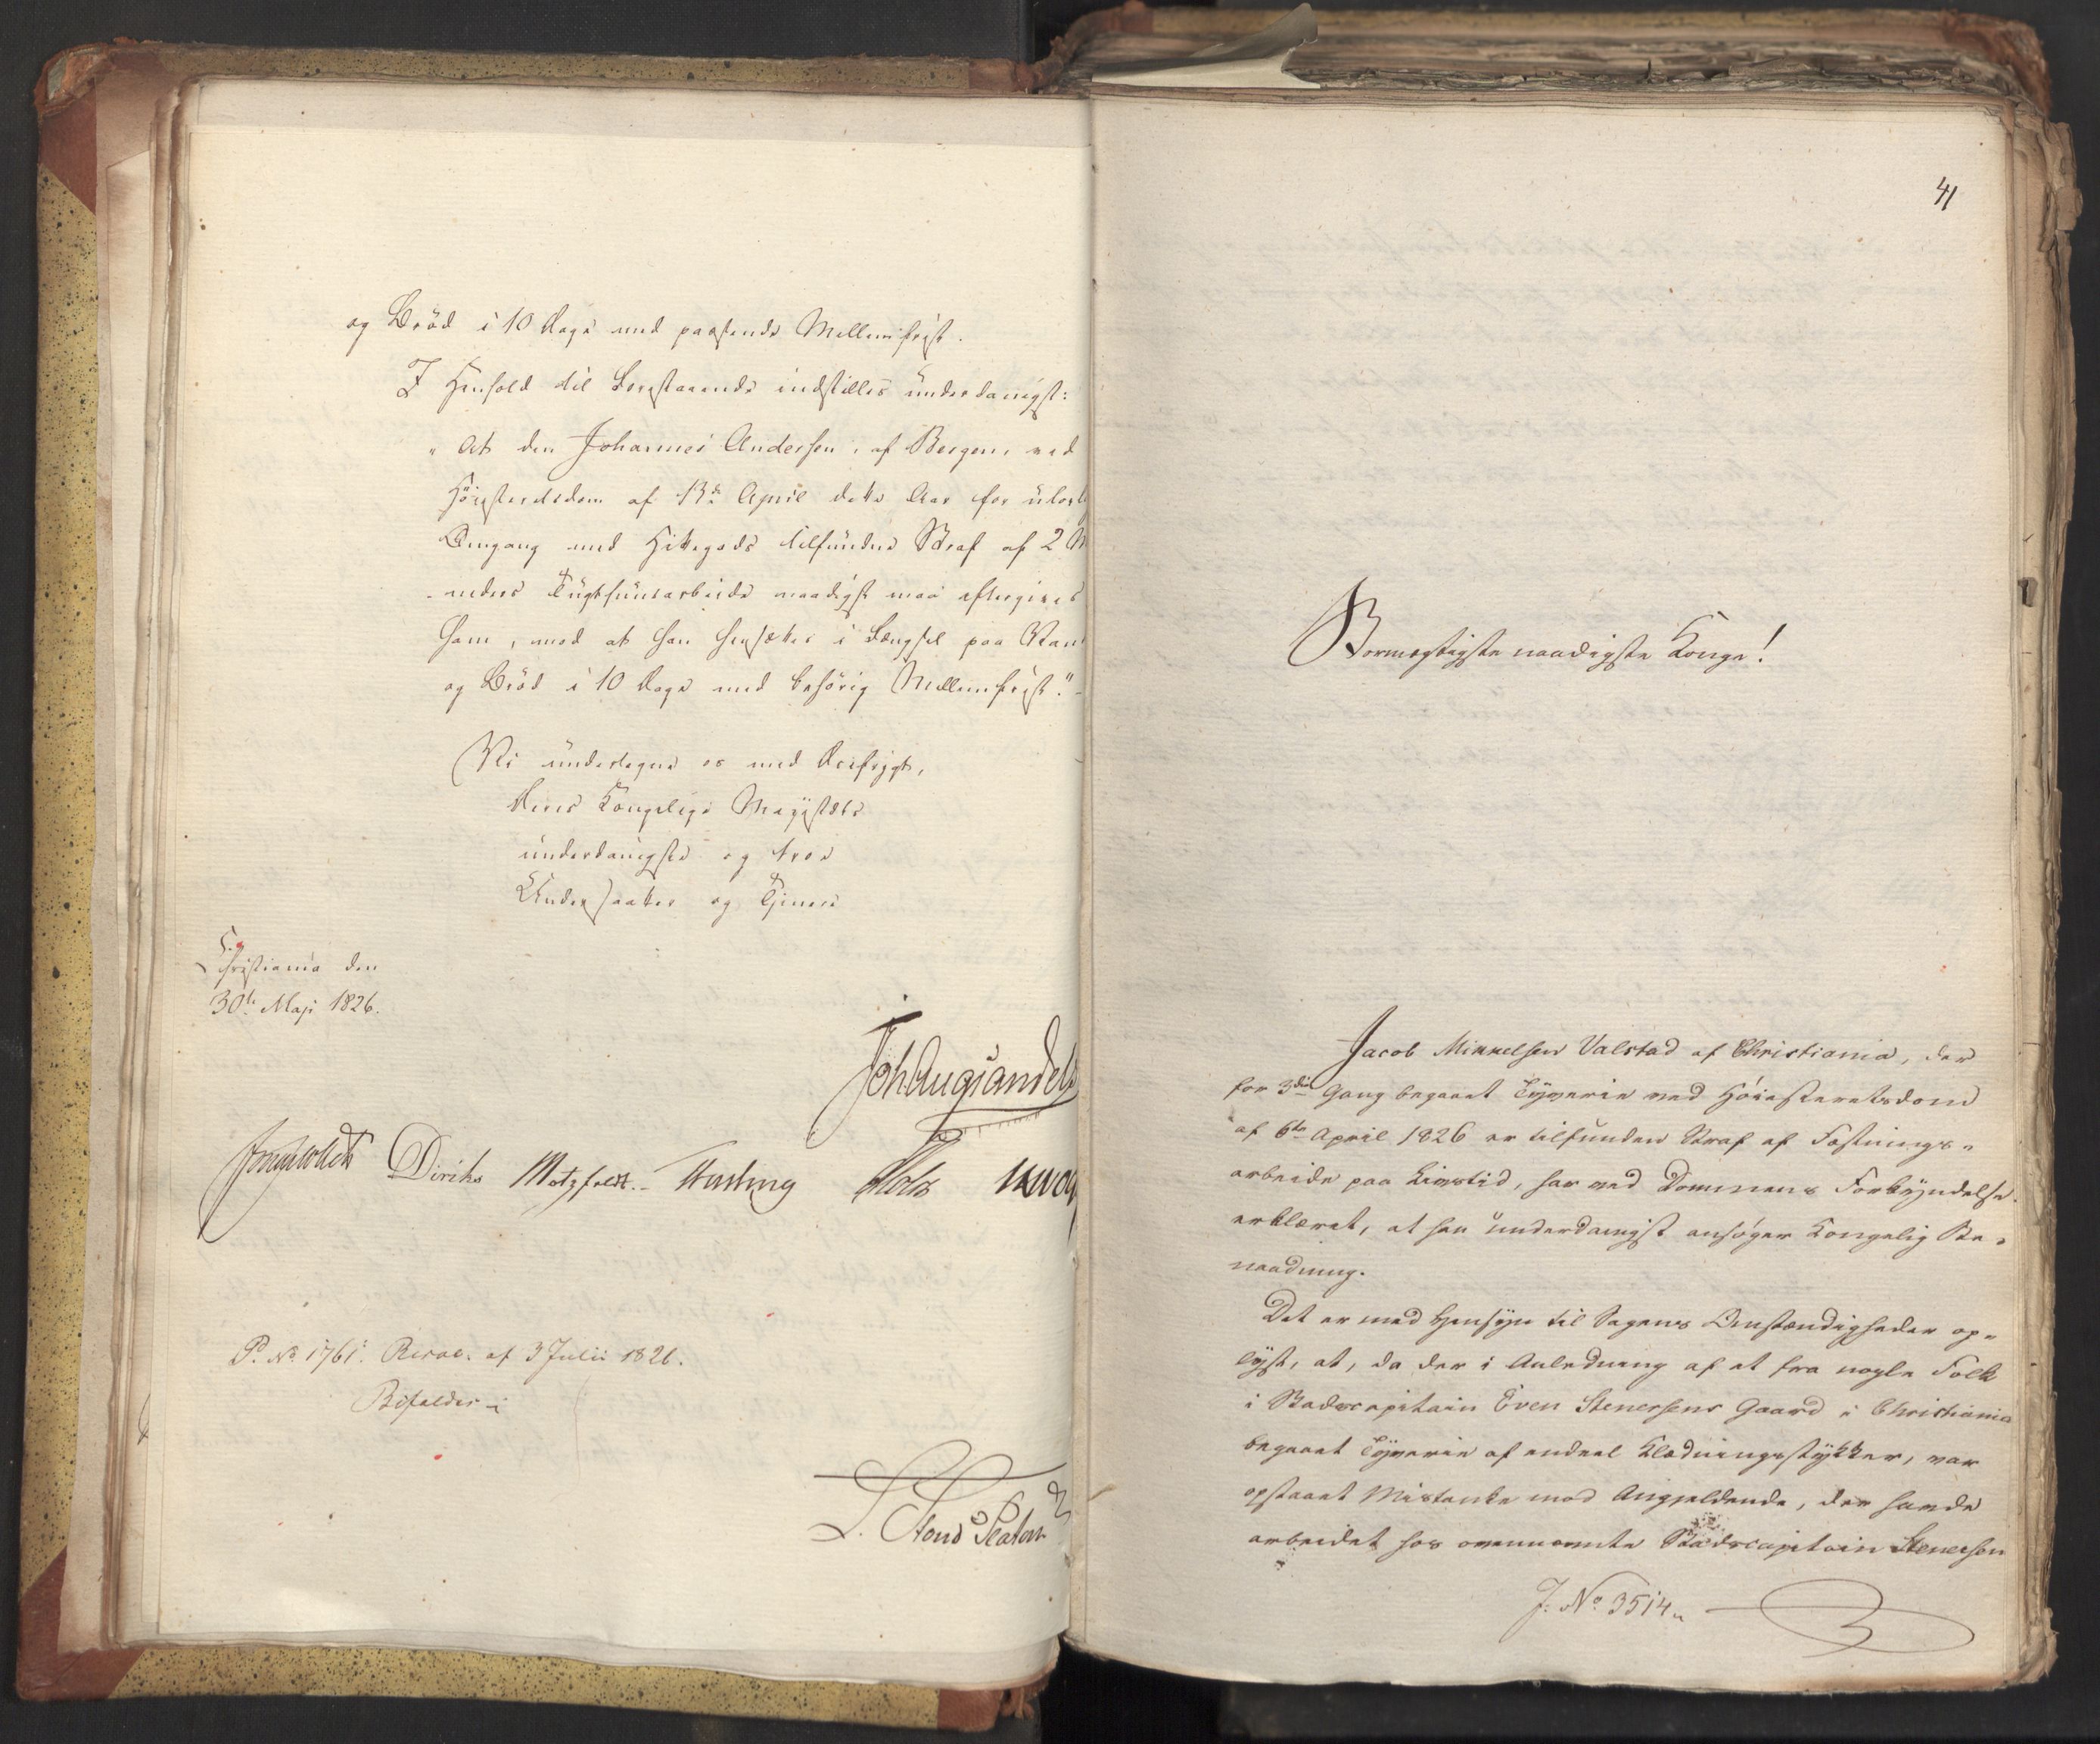 og Bröd i 10 Dage med passende Mellemfrist.
I Henhold til Forestaaende indstilles underdanigst:
"At den Johannes Andersen, af Bergen, ved
Höiesteretsdom af 13de April dette Aar for ulovl
Omgang med Hittegods tilfundne Straf af 2 M
neders Tugthuusarbeide naadigst maa eftergives
ham, mod at han hensættes i Fængsel paa Van
og Bröd i 10 Dage med behörig Mellemfrist."
Vi undertegne os med Ærefrygt,
Deres Kongelige Majestæts
underdanigste og troe
Undersaatter og Tjenere
Christiania den
30te Maji 1826.
Joh Aug Sandels
Diriks Motzfeldt. Fasting Holst
P. No 1761. Resol. af 3 Julii 1826.
Bifaldes
41
Stormægtigste naadigste Konge!
Jacob Mikkelsen Valstad af Christiania, der
for 3die Gang begaaet Tyverie ved Höiesteretsdom
af 6te April 1826 er tilfunden Straf af Fæstnings-
arbeide paa Livstid, har ved Dommens Forkyndelse
erklæret, at han underdanigst ansøger Kongelig Be-
naadning.
Det er med Hensyn til Sagens Omstændigheder op-
lyst, at, da der i Anledning af et fra nogle Folk
i Stadscapitain Even Stenersens Gaard i Christiania
begaaet Tyverie af endeel Klædningsstykker, var
opstaaet Mistanke mod Angjeldende, der havde
arbeidet hos ovennævnte Stadscapitain Stenersen
J. No 3514